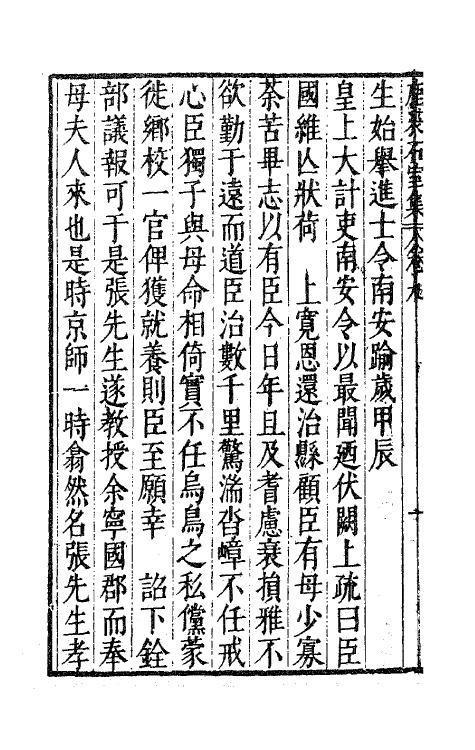 鹿裘石室集 卷
生始舉進士令南安踰歲甲辰
皇上大計吏南安令以最聞廼伏闕上疏曰臣
國維亾狀荷 上寬恩還治縣顧臣有母少寡
荼苦畢志以有臣今日年且及耆慮衰損雅不
欲勤于遠而道臣治數千里驚湍沓嶂不任戒
心臣獨子與母命相倚實不任烏鳥之私儻蒙
徙鄉校一官俾獲就養則臣至願幸 詔下銓
部議報可于是張先生遂教授余寧國郡而奉
母夫人來也是時京師一時翕然名張先生孝